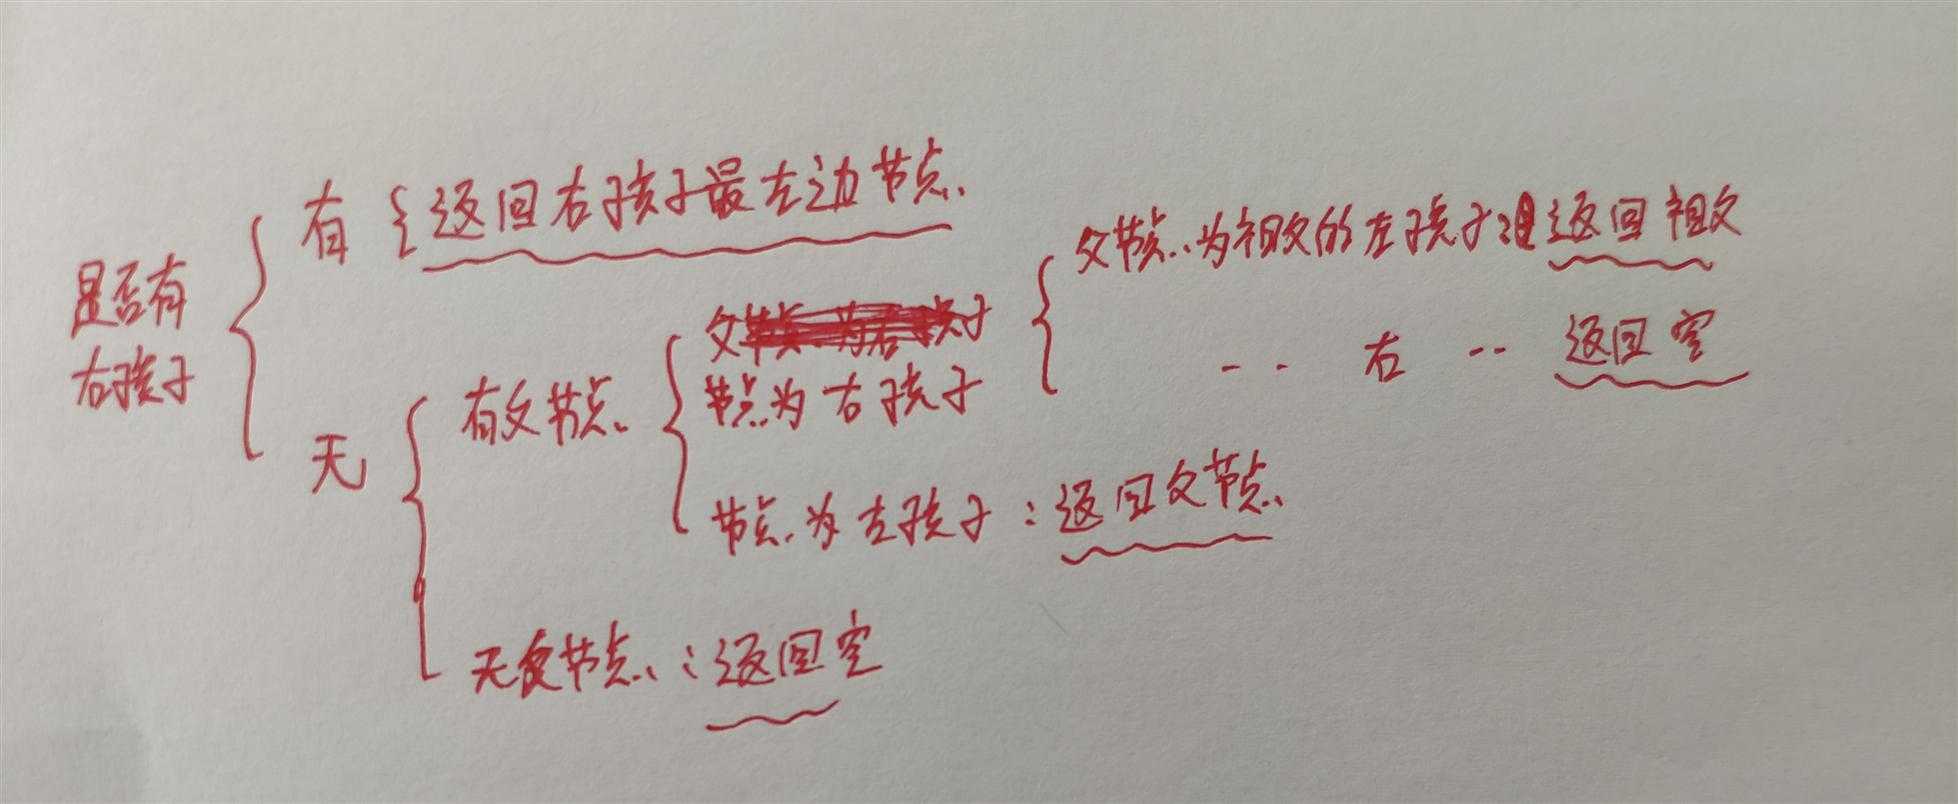 是否有
右孩子
有 { 返回右孩子最左边节点.
无
有父节点.
父
子
节点为右孩子
父节点.为祖父的左孩子:返回祖父
.. 右 .. 返回空
节点.为左孩子:返回父节点.
无父节点.:返回空